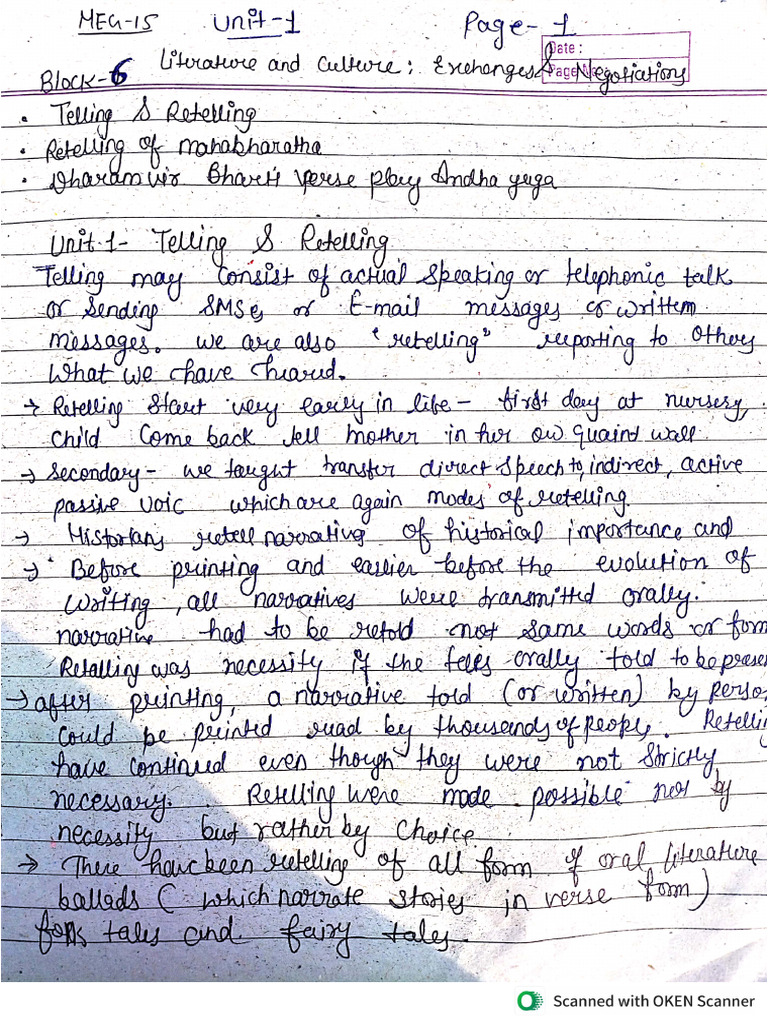 MEG-15 Unit-1 Page-1
Date :
Block-6 Literature and Culture: Exchanges & Negotiations
• Telling & Retelling
• Retelling of Mahabharatha
• Dharamvir Bharti verse play Andha yuga
Unit.1- Telling & Retelling
Telling may consist of actual speaking or telephonic talk
or sending SMSes or E-mail messages or written
messages. we are also "retelling" reporting to others
What we have heard.
→ Retelling start very early in life - first day at nursery,
child come back tell mother in her ow quaint wall
→ Secondary - we taught transfer direct speech to, indirect, active
passive voic which are again modes of retelling.
→ Historians retell narrative of historical importance and
→ Before printing and earlier before the evolution of
writing, all narratives were transmitted orally.
narrative had to be retold not same words or form
Retalling was necessity if the teles orally told to be prese
→ after printing, a narrative told (or written) by perso
could be printed read by thousands of people. Retellin
have continued even though they were not strictly
necessary. Retelling were mode possible not by
necessity but rather by choice
→ There have been retelling of all form of oral literature
ballads ( which narrate stories in verse form)
folks tales and fairy tales.
Scanned with OKEN Scanner